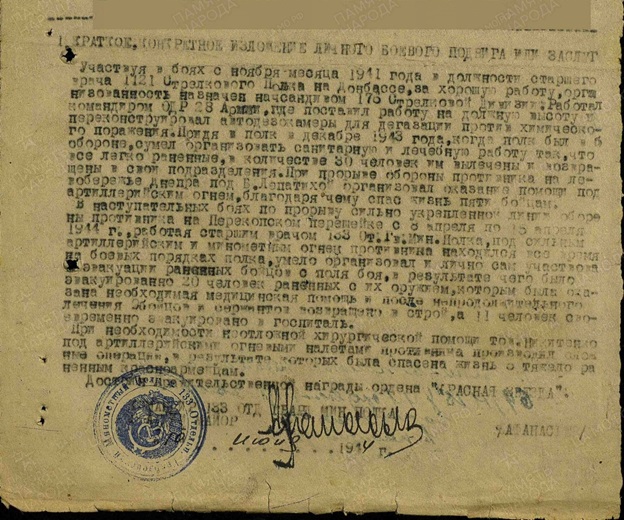 1 КРАТКОЕ, КОНКРЕТНОЕ ИЗЛОЖЕНИЕ ЛИЧНОГО БОЕВОГО ПОДВИГА ИЛИ ЗАСЛУГ
Участвуя в боях с ноября месяца 1941 года в должности старшего
врача 1121 Стрелкового Полка на Донбассе, за хорошую работу, орга
низованность назначен начсандивом 176 Стрелковой Дивизии. Работал
командиром ОДР 28 Армии, где поставил работу на должную высоту и
переконструировал автодезкамеры для дегазации против химическо-
го поражения. Придя в полк в декабре 1943 года, когда полк был в
обороне, сумел организовать санитарную и лечебную работу так, что
все легко раненные, в количестве 30 человек им вылечены и возвра-
щены в свои подразделения. При прорыве обороны противника на ле-
вобережье Днепра под Б. Лепатихой организовал оказание помощи под
артиллерийским огнем, благодаря чему спас жизнь пяти бойцам.
В наступательных боях по прорыву сильно укрепленной линии оборо
ны противника на Перекопском перешейке с 8 апреля по апреля
1944 г., работая старшим врачом 133 От. Гв. Мин. Полка, под сильным
артиллерийским и минометным огнем противника находился все время
на боевых порядках полка, умело организовал и лично сам участвова
в эвакуации раненных бойцов с поля боя, в результате чего было
эвакуировано 20 человек раненных с их оружием, которым была ока-
зана необходимая медицинская помощь и после непродолжительного
лечения бойцов и сержантов возвращено в строй, а 11 человек сво-
евременно эвакуировано в госпиталь.
При необходимости неотложной хирургической помощи тов. Никитенко
под артиллерийскими огневыми налетами противника производил слож
ные операции, в результате которых была спасена жизнь 3 тяжело ра
ненным красноармейцам.
Достоин правительственной награды ордена "КРАСНАЯ ЗВЕЗДА".
133 ОТД. МИН. ПОЛКА
МАЙОР /АФАНАСЬЕВ/
июня 1944 г.